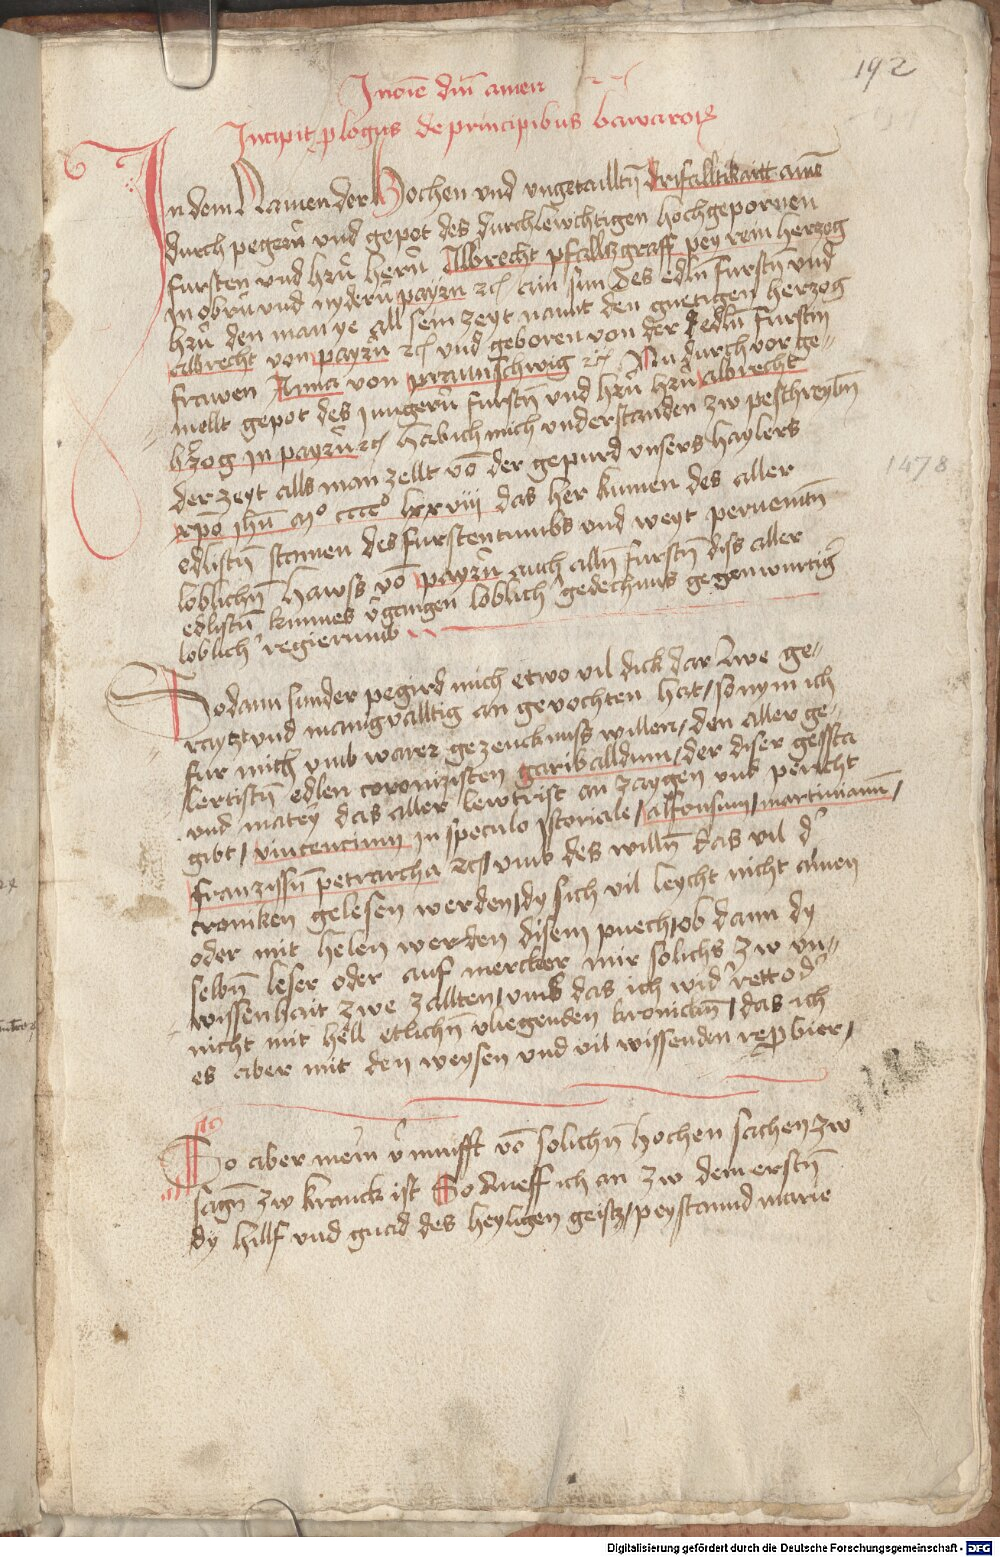 192
In noīe dn̄i amen
Incipit plogus de principibus bawaroꝝ
In dem Namen der Hochen vnd vngetailltn̄ drifalltikaitt amē
durch pegerū vnd gepot des durchlewchtigen hochgepornen
fursten vnd hrn̄ hern̄ Albrecht pfallczgraff pey rein herzog
in obrn̄ vnd nydern̄ payrn̄ ꝛc̄ ain sun des edln̄ furstn̄ vnd
hrn̄ den man ye all sein zeyt nannt den guetigen herzog
albrecht von payrn̄ ꝛc̄ vnd geboren von der edln̄ furstin
frawen Anna von prawnschwig ꝛc̄ Nu durch vor ge-
mellt gepot des jungern̄ furstn̄ vnd hrn̄ hrn̄ albrecht
hꝛzog in payrn̄ ꝛc̄ hab ich mich vnderstanden zw peschreybn̄
der zeyt alls man zellt vō der gepurd vnsers haylers
xp̄o jhū mº ccccº lxxviii das her kumen des aller
1478
edlistn̄ stamen des furstentumbs vnd weyt peruemtn̄
loblichn̄ hawss vō payrn̄ auch alln̄ furstn̄ diss aller
edlistn̄ kunnes v̄gangen loblich gedechtnus gegenwurtiḡ
loblich regierumb
So dann sunder pegird mich etwo vil dick dar zwe ge-
raytzt vnd manigualltig an gevochten hat / so nym ich
fur mich vmb warer gezeucknuss willen / den aller ge-
lertistn̄ edlen coronizisten gariballdum / der diser gessta
vnd matery das aller lewtrist an zaygen vnd pericht
gibt / vincencium in speculo istoriale / alfonsum / martinianū /
franzissn̄ petrarcha ꝛc̄ / vmb des willn̄ das vil d̄
croniken gelesen werden / dy sich vil leycht nicht ainen
oder mit helen werden disem puech / ob dann dy
selbn̄ leser oder auf mercker mir solichs zw vn-
wissenhait zwe zallten / vmb das ich wid̄ rett od̄
nicht mit hell etlichn̄ vliegenden kronickn̄ / das ich
es aber mit den weysen vnd vil wissenden reprbier /
So aber mein v̄nunfft vō solichn̄ hochen sachen zw
sagn̄ zw kranck ist So rueff ich an zw dem erstn̄
dy hillf vnd gnad des heyligen geistz / peystannd marie
Digitalisierung gefördert durch die Deutsche Forschungsgemeinschaft - DFG